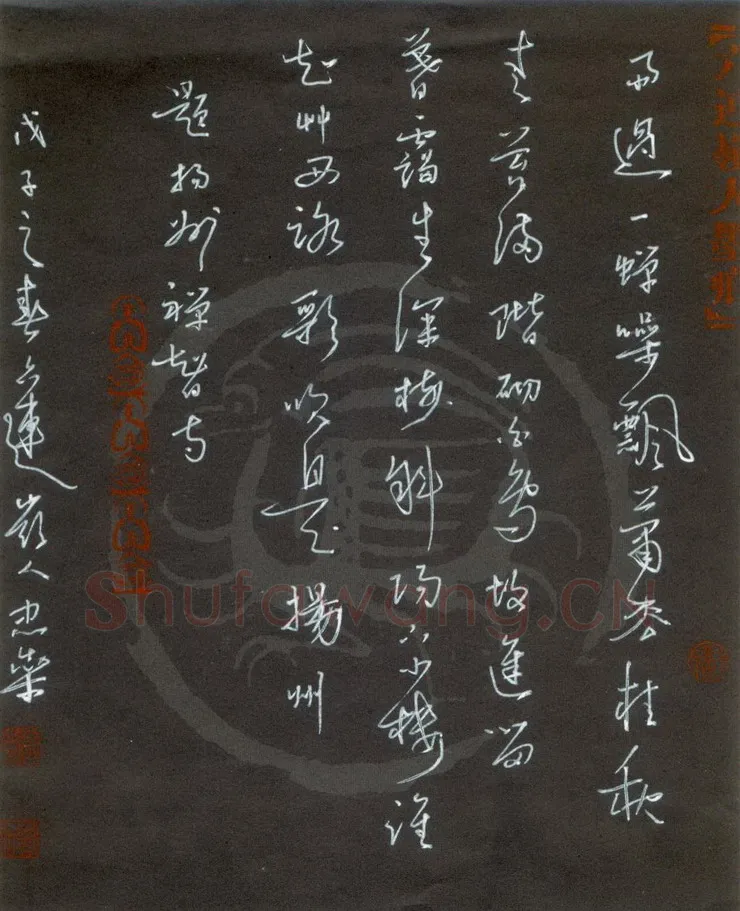 雨過一蟬噪飄蕭松桂秋
青苔滿階砌白鳥故遲留
暮靄生深樹斜陽下小樓誰
知竹西路歌吹是揚州
題揚州禪智寺
戊子之春六連嶺人忠榮
Shufawang.CN